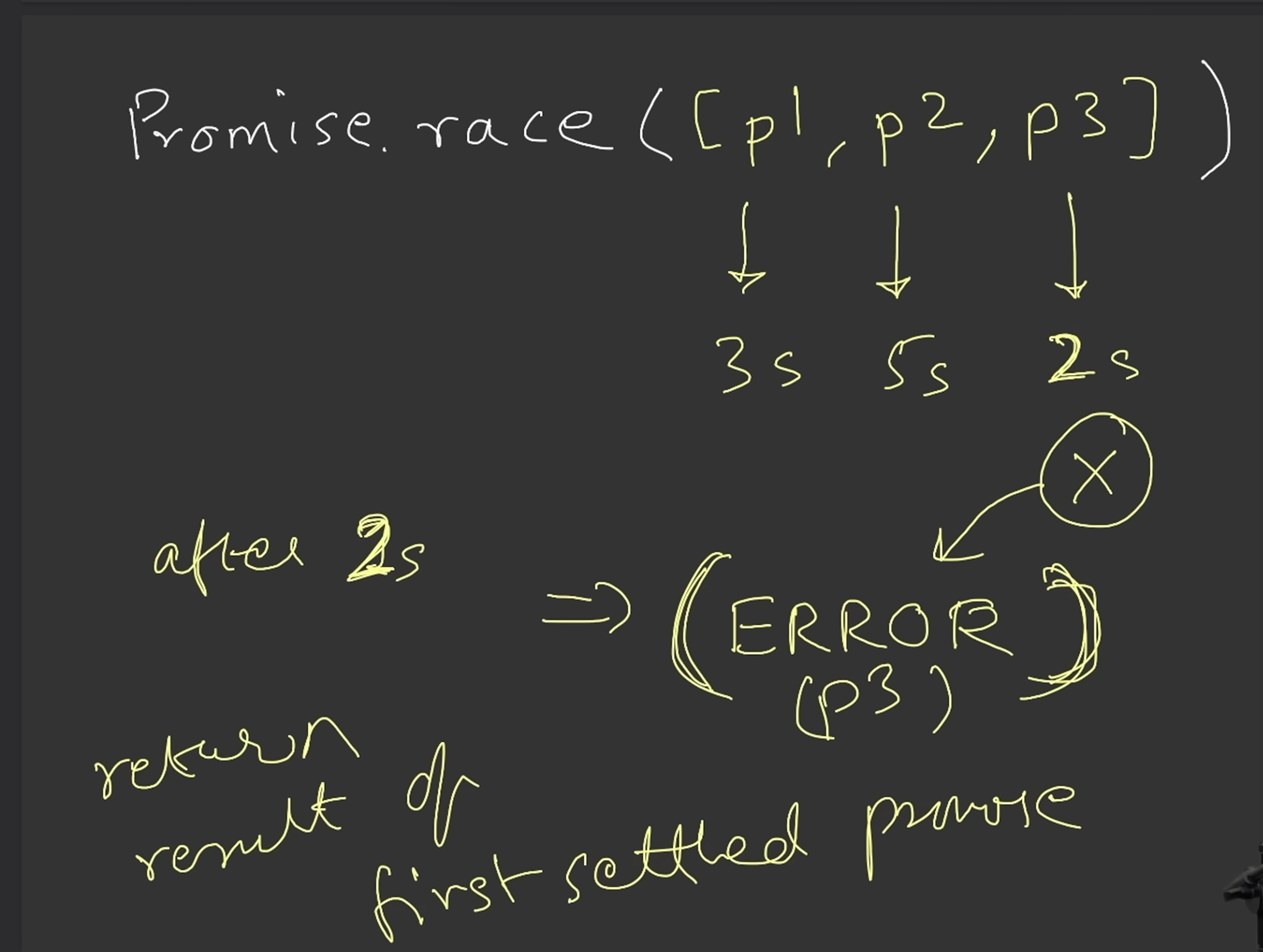 Promise.race([p1, p2, p3])
↓ ↓ ↓
3s 5s 2s
X
after 2s
=> (ERROR)
(P3)
return
result of
first settled promise